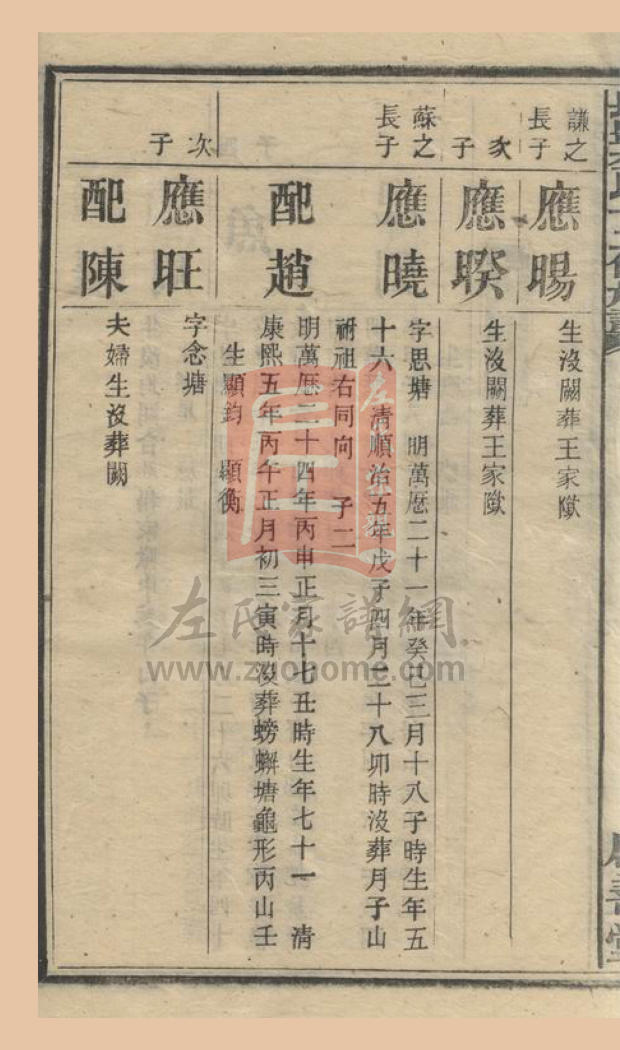 謙之
長子
應暘
生沒闕葬王家嶽
次子
應睽
生沒闕葬王家嶽
蘇之
長子
應曉
字思塘　明萬厯二十一年癸巳三月十八子時生年五
十六　清順治五年戊子四月二十八卯時沒葬月子山
祔祖右同向　子二
配趙
明萬厯二十四年丙申正月十七丑時生年七十一　清
康熙五年丙午正月初三寅時沒葬螃蠏塘龜形丙山壬
生顯鈞　顯衡
次子
應旺
字念塘
配陳
夫婦生沒葬闕
左氏家譜網
www.zuohome.com